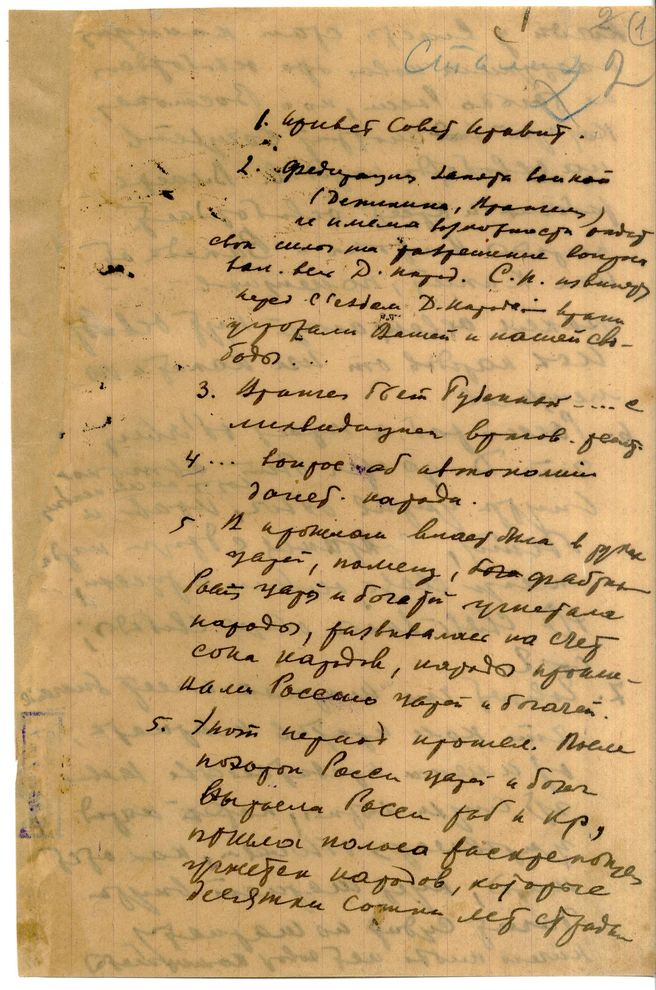 2 1
Сталин
2
1. Привет Совет Правит.
2. Федерация занята войной
(Деникина, Врангель)
не имела возможности отдать
свои силы на разрешение вопроса
С.П. извиняется
перед съездом Д. народа враги
угрожали Вашей и нашей сво-
боды...
3. Врангел бьет Буденный .... с
ликвидацией врагов
4 ... вопрос об автономии
дагест. народа.
5 В прошлом власть была в руках
царей, помещ,
Росс царей и богатей угнетала
народы, развивалась на счет
сока народов, народы прокли-
нали Россию царей и богачей.
5. Этот период прошел. После
похорон Росси царей и богач
выросла Росси раб и кр,
полоса раскрепощен
угнетен народов, которые
десятки сотни лет страдали